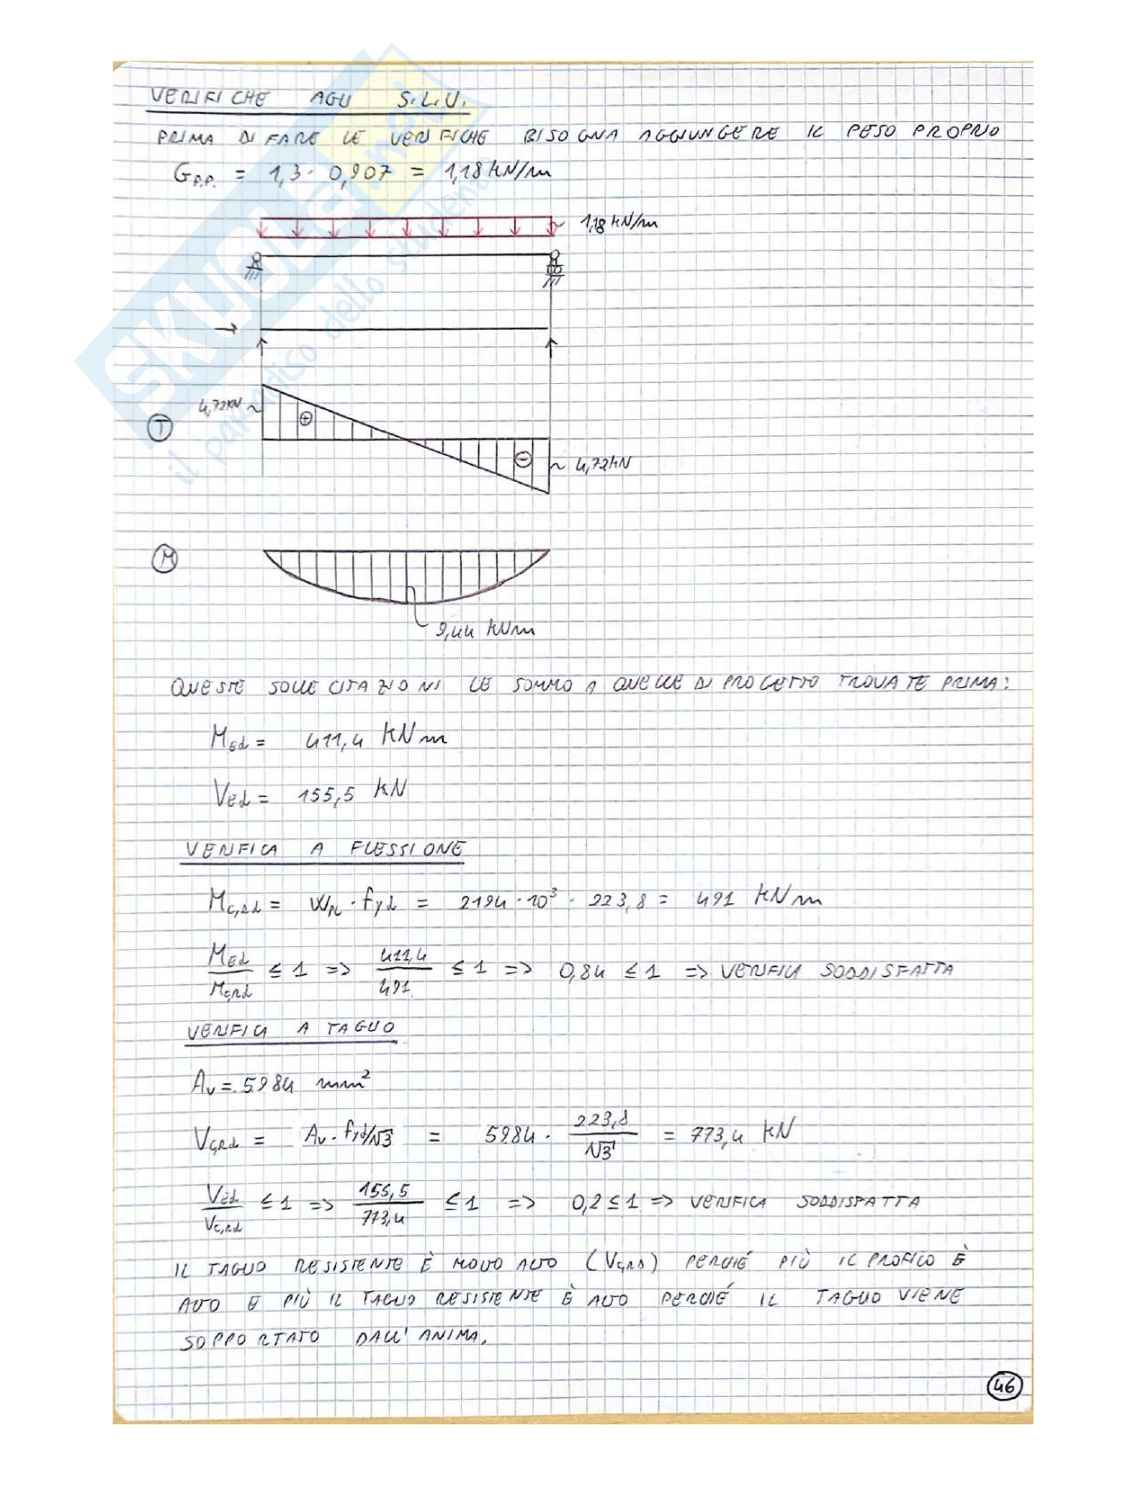 VERIFICHE AGLI S.L.U.
PRIMA DI FARE LE VERIFICHE BISOGNA AGGIUNGERE IL PESO PROPRIO
G_{P.P.} = 1,3 · 0,907 = 1,18 kN/m
1,18 kN/m
4,72 kN
T
+
-
4,72 kN
M
9,44 kNm
QUESTE SOLLECITAZIONI LE SOMMO A QUELLE DI PROGETTO TROVATE PRIMA:
M_{Ed} = 411,4 kNm
V_{Ed} = 155,5 kN
VERIFICA A FLESSIONE
M_{c,Rd} = W_{PL} · f_{yd} = 2194 · 10³ · 223,8 = 491 kNm
M_{Ed}/M_{c,Rd} ≤ 1 => 411,4/491 ≤ 1 => 0,84 ≤ 1 => VERIFICA SODDISFATTA
VERIFICA A TAGLIO
A_v = 5984 mm²
V_{c,Rd} = A_v · f_{yd}/√3 = 5984 · 223,8/√3 = 773,4 kN
V_{Ed}/V_{c,Rd} ≤ 1 => 155,5/773,4 ≤ 1 => 0,2 ≤ 1 => VERIFICA SODDISFATTA
IL TAGLIO RESISTENTE È MOLTO ALTO (V_{c,RD}) PERCHÉ PIÙ IL PROFILO È
ALTO E PIÙ IL TAGLIO RESISTENTE È ALTO PERCHÉ IL TAGLIO VIENE
SOPPORTATO DALL'ANIMA.
46
SKUOLA.net
il paradiso dello studente